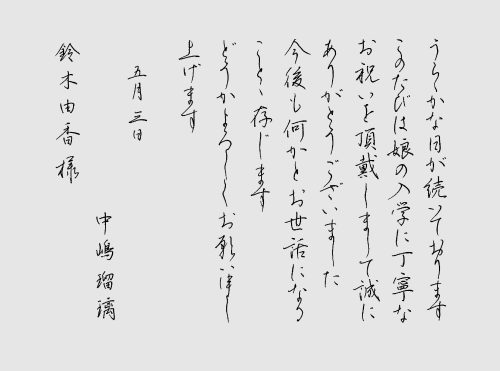 うらゝかな日が続いております
このたびは娘の入学に丁寧な
お祝いを頂戴しまして誠に
ありがとうございました
今後も何かとお世話になる
ことゝ存じます
どうかよろしくお願い申し
上げます
五月三日
中嶋瑠璃
鈴木由香様